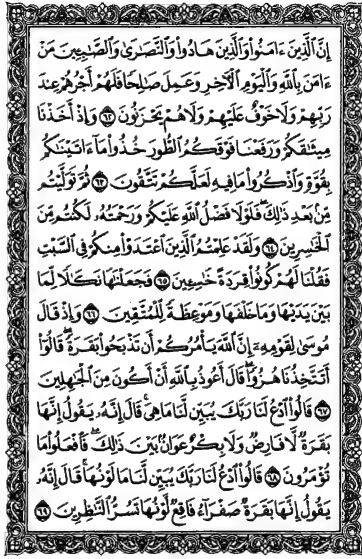 إِنَّ ٱلَّذِينَ ءَامَنُواْ وَٱلَّذِينَ هَادُواْ وَٱلنَّصَٰرَىٰ وَٱلصَّٰبِـِٔينَ مَنْ
ءَامَنَ بِٱللَّهِ وَٱلْيَوْمِ ٱلْأَخِرِ وَعَمِلَ صَٰلِحًا فَلَهُمْ أَجْرُهُمْ عِندَ
رَبِّهِمْ وَلَا خَوْفٌ عَلَيْهِمْ وَلَا هُمْ يَحْزَنُونَ ٦٢ وَإِذْ أَخَذْنَا
مِيثَٰقَكُمْ وَرَفَعْنَا فَوْقَكُمُ ٱلطُّورَ خُذُواْ مَآ ءَاتَيْنَٰكُم
بِقُوَّةٍ وَٱذْكُرُواْ مَا فِيهِ لَعَلَّكُمْ تَتَّقُونَ ٦٣ ثُمَّ تَوَلَّيْتُم
مِّنۢ بَعْدِ ذَٰلِكَۖ فَلَوْلَا فَضْلُ ٱللَّهِ عَلَيْكُمْ وَرَحْمَتُهُۥ لَكُنتُم مِّنَ
ٱلْخَٰسِرِينَ ٦٤ وَلَقَدْ عَلِمْتُمُ ٱلَّذِينَ ٱعْتَدَوْاْ مِنكُمْ فِى ٱلسَّبْتِ
فَقُلْنَا لَهُمْ كُونُواْ قِرَدَةً خَٰسِـِٔينَ ٦٥ فَجَعَلْنَٰهَا نَكَٰلًا لِّمَا
بَيْنَ يَدَيْهَا وَمَا خَلْفَهَا وَمَوْعِظَةً لِّلْمُتَّقِينَ ٦٦ وَإِذْ قَالَ
مُوسَىٰ لِقَوْمِهِۦٓ إِنَّ ٱللَّهَ يَأْمُرُكُمْ أَن تَذْبَحُواْ بَقَرَةًۖ قَالُوٓاْ
أَتَتَّخِذُنَا هُزُوًاۖ قَالَ أَعُوذُ بِٱللَّهِ أَنْ أَكُونَ مِنَ ٱلْجَٰهِلِينَ
٦٧ قَالُواْ ٱدْعُ لَنَا رَبَّكَ يُبَيِّن لَّنَا مَا هِىَۚ قَالَ إِنَّهُۥ يَقُولُ إِنَّهَا
بَقَرَةٌ لَّا فَارِضٌ وَلَا بِكْرٌ عَوَانٌۢ بَيْنَ ذَٰلِكَۖ فَٱفْعَلُواْ مَا
تُؤْمَرُونَ ٦٨ قَالُواْ ٱدْعُ لَنَا رَبَّكَ يُبَيِّن لَّنَا مَا لَوْنُهَاۚ قَالَ إِنَّهُۥ
يَقُولُ إِنَّهَا بَقَرَةٌ صَفْرَآءُ فَاقِعٌ لَّوْنُهَا تَسُرُّ ٱلنَّٰظِرِينَ ٦٩